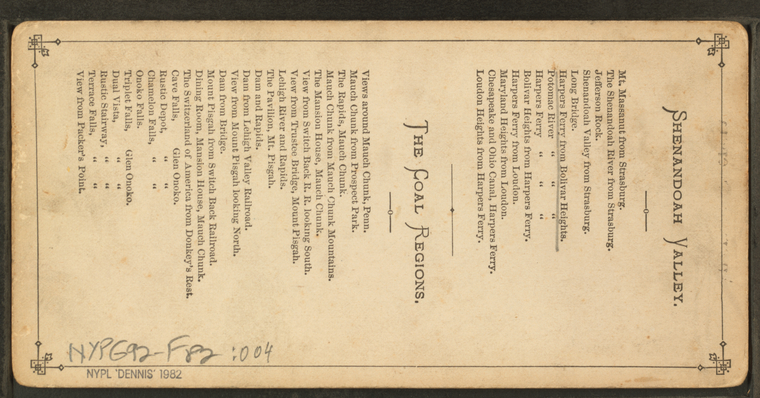 SHENANDOAH VALLEY.
Mt. Massanut from Strasburg.
The Shenandoah River from Strasburg.
Jefferson Rock.
Shenandoah Valley from Strasburg.
Long Bridge.
Harpers Ferry from Bolivar Heights.
Potomac River " " "
Harpers Ferry " " "
Bolivar Heights from Harpers Ferry.
Harpers Ferry from Loudon.
Maryland Heights from Loudon.
Chesapeake and Ohio Canal, Harpers Ferry.
Loudon Heights from Harpers Ferry.
THE COAL REGIONS.
Views around Mauch Chunk, Penn.
Mauch Chunk from Prospect Park.
The Rapids, Mauch Chunk.
Mauch Chunk from Mauch Chunk Mountains.
The Mansion House, Mauch Chunk.
View from Switch Back R. R. looking South.
View from Trustee Bridge, Mount Pisgah.
Lehigh River and Rapids.
The Pavilion, Mt. Pisgah.
Dam and Rapids.
Dam from Lehigh Valley Railroad.
View from Mount Pisgah looking North.
Dam from Bridge.
Mount Pisgah from Switch Back Railroad.
Dining Room, Mansion House, Mauch Chunk.
The Switzerland of America from Donkey's Rest.
Cave Falls, Glen Onoko.
Rustic Depot, " "
Chameleon Falls, " "
Onoko Falls.
Triplet Falls, Glen Onoko.
Dual Vista, " "
Rustic Stairway, " "
Terrace Falls, " "
View from Packer's Point.
NYPG92-F82 :004
NYPL 'DENNIS' 1982